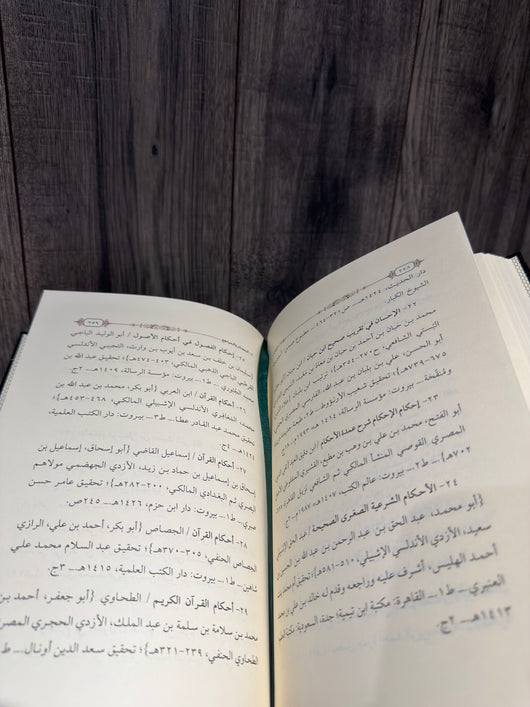 ٢٥٨
دار الحديث، ١٤٢٤هـ
الشيوخ الكبار.
٢٢- الإحسان في تقريب صحيح ابن حبان
محمد بن حبان بن أحمد بن حبان بن معاذ
البستي الشافعي،
أبو الحسن، علي بن بلبان بن عبد الله الفارسي
٦٧٥-٧٣٩هـ}؛ تحقيق شعيب الأرنؤوط.
ومنقحة. ـ بيروت: مؤسسة الرسالة، ١٤١٤
٢٣- إحكام الأحكام شرح عمدة الأحكام / ابن دقيق العيد
أبو الفتح، محمد بن علي بن وهب بن مطيع، القشيري
المصري القوصي المنشأ المالكي ثم الشافعي
٧٠٢هـ}. ـ ط٢. ـ بيروت: عالم الكتب، ١٤٠٧هـ،
٢٤- الأحكام الشرعية الصغرى الصحيحة / عبد الحق الإشبيلي
{أبو محمد، عبد الحق بن عبد الرحمن بن عبد الله بن الحسين بن
سعيد، الأزدي الأندلسي الإشبيلي، ٥١٠-٥٨١هـ}؛ تحقيق أم محمد بنت
أحمد الهليس، أشرف عليه وراجعه وقدم له خالد بن علي بن محمد
العنبري. ـ ط١. ـ القاهرة: مكتبة ابن تيمية؛ جدة، السعودية: مكتبة العلم،
١٤١٣هـ. ـ ٢ج.
٢٥٩
٢٥- إحكام الفصول في أحكام الأصول / أبو الوليد الباجي
سليمان بن خلف بن سعد بن أيوب بن وارث، التجيبي الأندلسي
القرطبي الباجي الذهبي المالكي، ٤٠٣-٤٧٤هـ}؛ تحقيق عبد الله بن
الجبوري. ـ ط١. ـ بيروت: مؤسسة الرسالة، ١٤٠٩هـ.
٢٦- أحكام القرآن / ابن العربي {أبو بكر، محمد بن عبد الله بن
محمد، المعافري الأندلسي الإشبيلي المالكي، ٤٦٨-٥٤٣هـ}؛
تحقيق محمد عبد القادر عطا. ـ ط٣. ـ بيروت: دار الكتب العلمية،
١٤٢٤هـ. ـ ٤ج.
٢٧- أحكام القرآن / إسماعيل القاضي {أبو إسحاق، إسماعيل بن
إسحاق بن إسماعيل بن حماد بن زيد، الأزدي الجهضمي مولاهم
البصري ثم البغدادي المالكي، ٢٠٠-٢٨٢هـ}؛ تحقيق عامر حسن
صبري. ـ ط١. ـ بيروت: دار ابن حزم، ١٤٢٦هـ. ـ ٢٤٥ص.
٢٨- أحكام القرآن / الجصاص {أبو بكر، أحمد بن علي، الرازي
الجصاص الحنفي، ٣٠٥-٣٧٠هـ}؛ تحقيق عبد السلام محمد علي
شاهين. ـ ط١. ـ بيروت: دار الكتب العلمية، ١٤١٥هـ. ـ ٣ج.
٢٩- أحكام القرآن الكريم / الطحاوي {أبو جعفر، أحمد بن
محمد بن سلامة بن سلمة بن عبد الملك، الأزدي الحجري المصري
الطحاوي الحنفي، ٢٣٩-٣٢١هـ}؛ تحقيق سعد الدين أونال. ـ ط